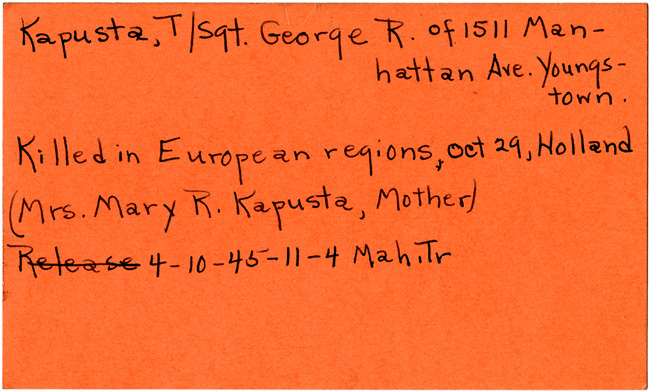 Kapusta, T/Sgt. George R. of 1511 Man-
hattan Ave. Youngs-
town.
Killed in European regions, Oct 29, Holland
(Mrs. Mary R. Kapusta, Mother)
Release 4-10-45-11-4 Mah.Tr